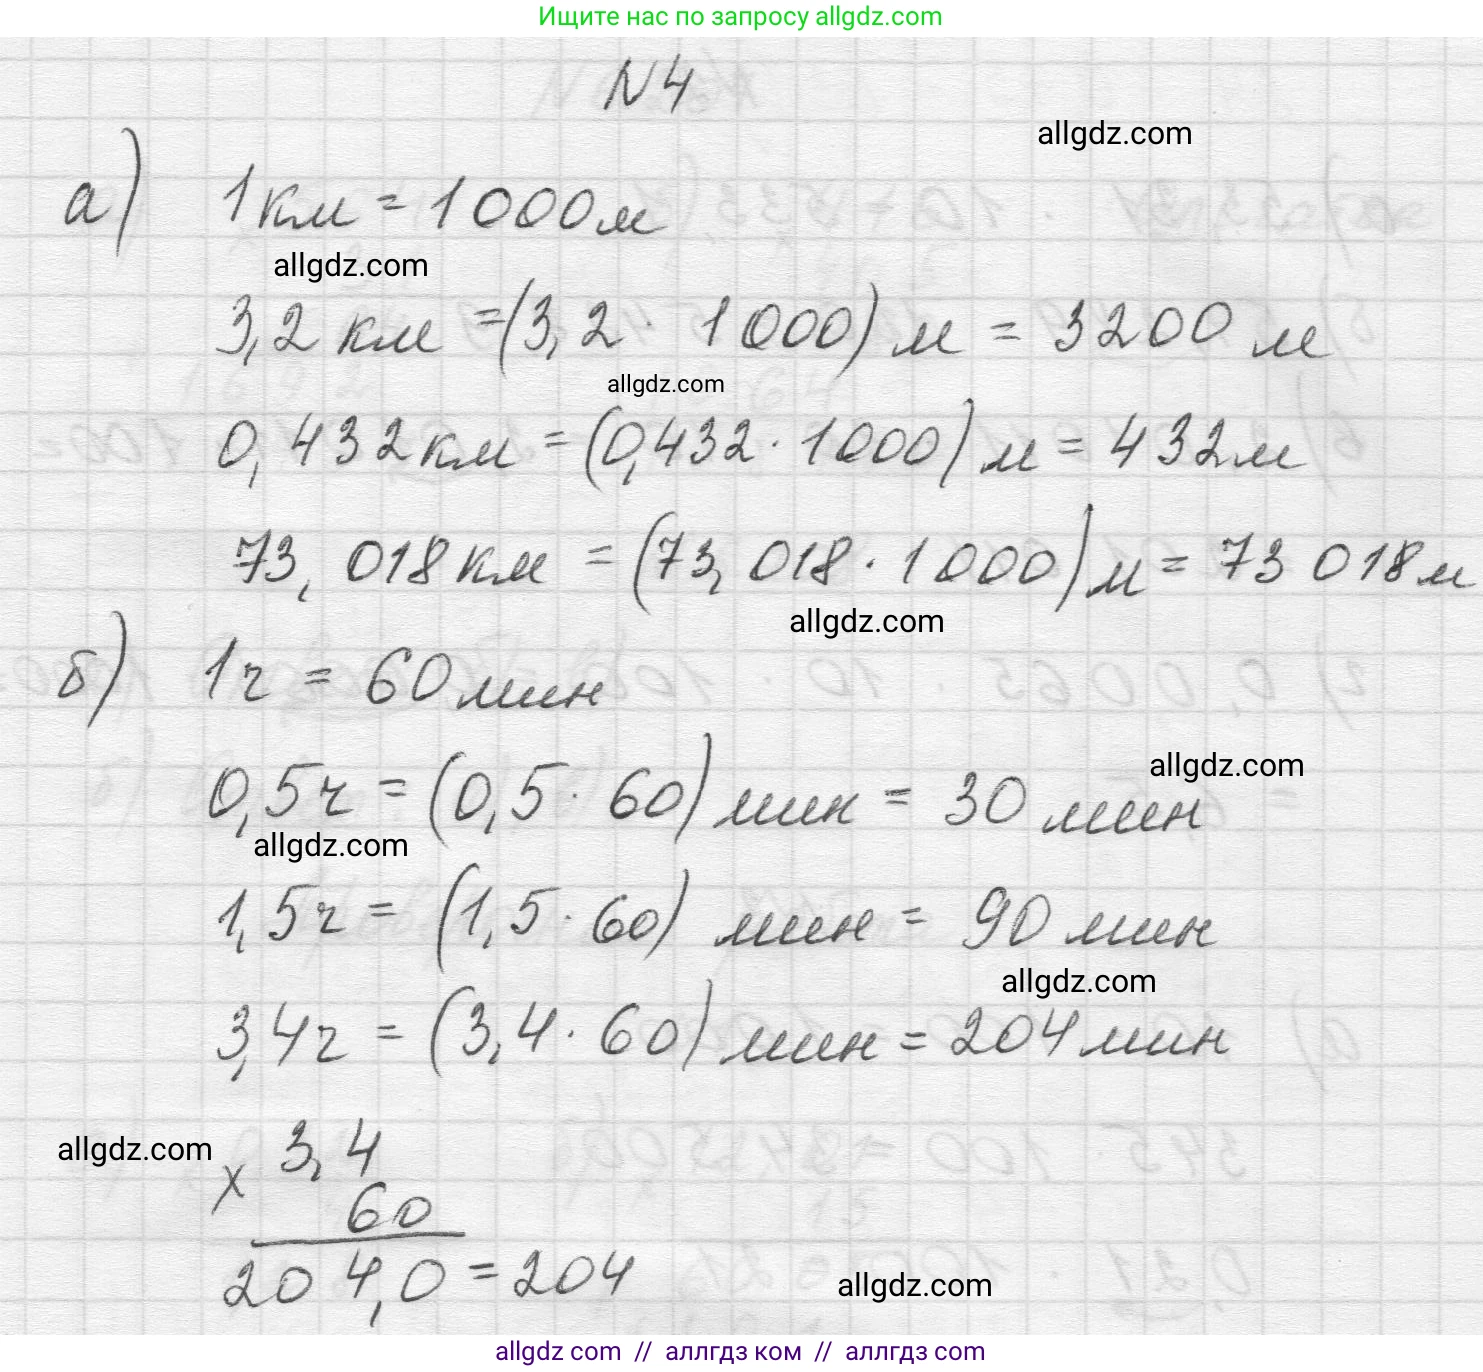 Ищите нас по запросу allgdz.com
N4
allgdz.com
а) 1 км = 1000 м
allgdz.com
3,2 км = (3,2 · 1000) м = 3200 м
allgdz.com
0,432 км = (0,432 · 1000) м = 432 м
73,018 км = (73,018 · 1000) м = 73 018 м
allgdz.com
б) 1 ч = 60 мин
allgdz.com
0,5 ч = (0,5 · 60) мин = 30 мин
allgdz.com
1,5 ч = (1,5 · 60) мин = 90 мин
allgdz.com
3,4 ч = (3,4 · 60) мин = 204 мин
allgdz.com
× 3,4
60
204,0 = 204
allgdz.com
allgdz com // аллгдз ком // allgdz com